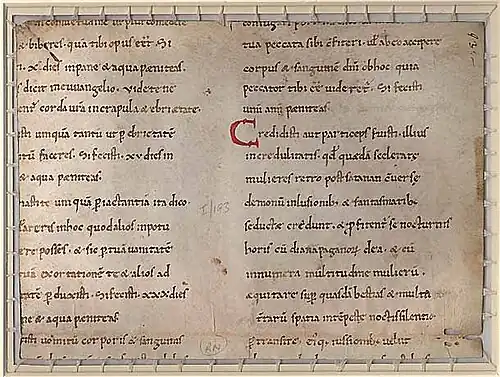 & biberes. quā tibi opus eēt. Si
x. dies in pane & aqua peniteas.
dicit in euuangelio. Videte ne
corda ura in crapula & ebrietate.
sti unquā tantū ut p̄ ebrietatē
tū faceres. Si fecisti. xv dies in
& aqua peniteas.
unquā p̄ iactantia ita dico
in hoc quod alios in potu
posses. & sic p̄ tuā uanitatē
tuā exortationē te & alios ad
tatē p̄duxisti. Si fecisti xxx dies
ne & aqua peniteas
sti uomitū corporis & sanguinis
tua peccata sibi c̄fiteri. ut ab eo accipere
corpus & sanguinē dnī ob hoc quia
peccator tibi eē uideret̄. Si fecisti
unū annū peniteas.
Credidisti aut particeps fuisti. illius
incredulitatis. qd̄ quedā scelerate
mulieres retro post satanan c̄uerse
demonū inlusionib; & fantasmatib;
seducte credunt. & p̄fitent̄ se nocturnis
horis cū diana paganoȝ dea. & cū
innumera multitudine mulierū.
equitare sup̄ quasdā bestias & multa
t̄rarū spatia intēpeste noctis silentio
p̄transire. eiq; iussionib; uelut
I/193